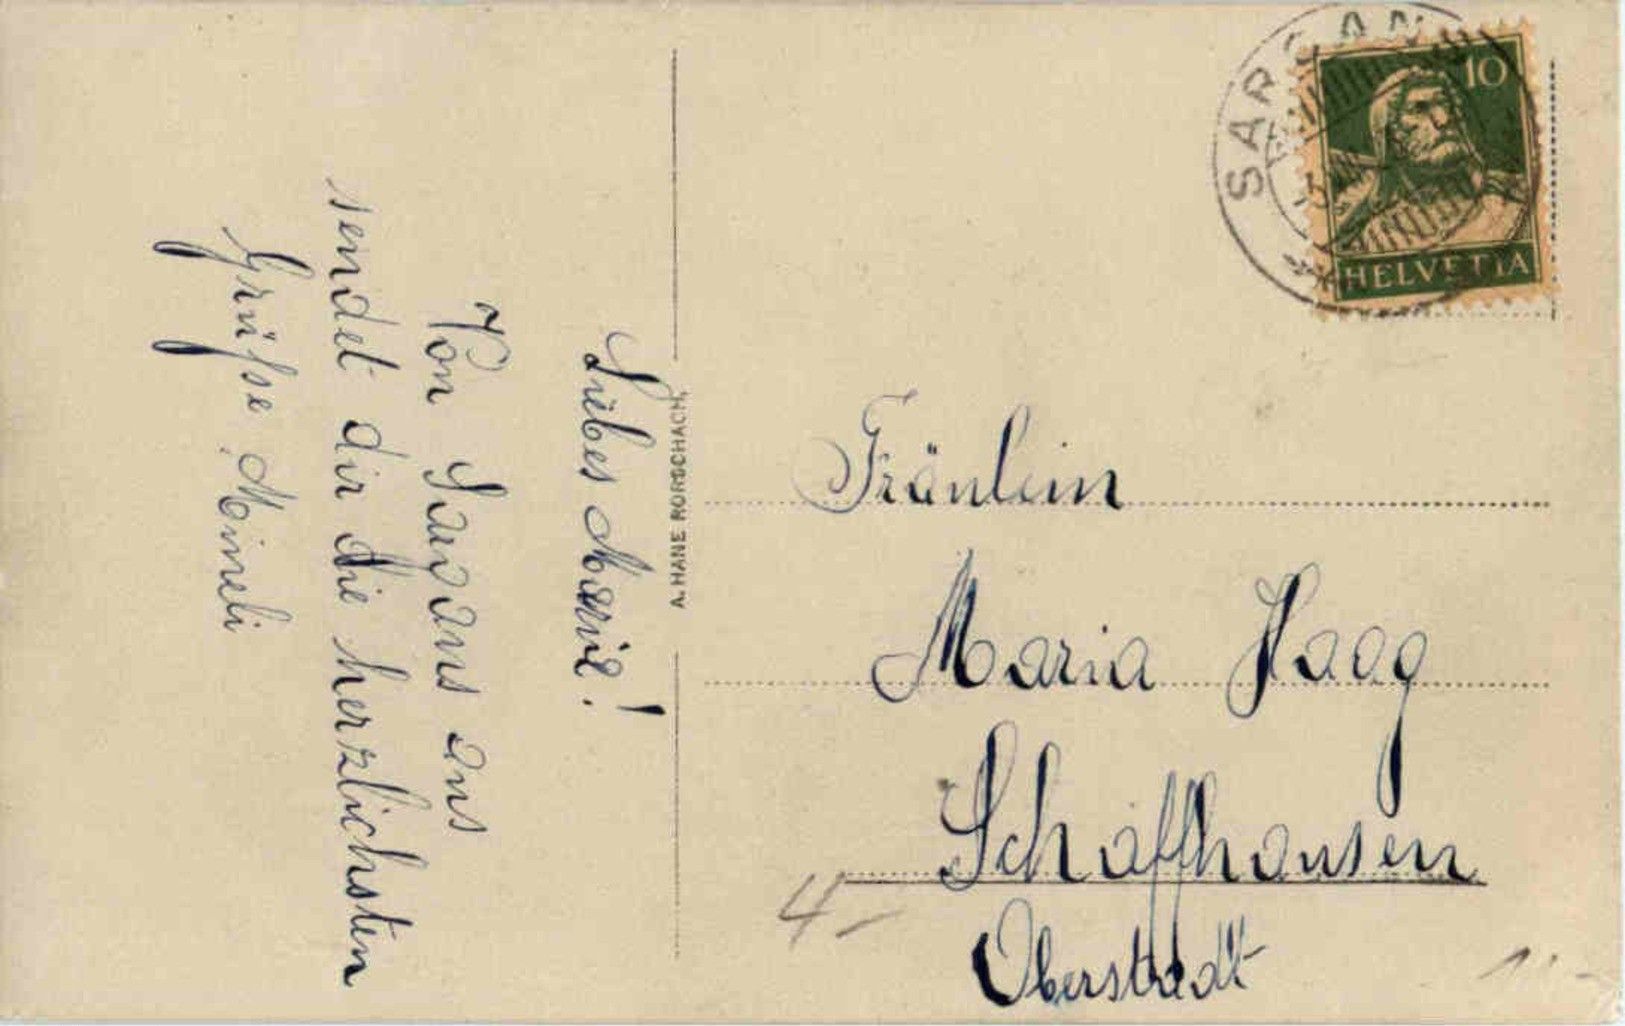 Liebes Marie!
Von Savans ans
sendet dir die herzlichsten
Grüsse, Mineli
A. HANE RORSCHACH.
SARGAN
10
HELVETIA
Fräulein
Maria Haag
Schaffhausen
Oberstadt
4.-